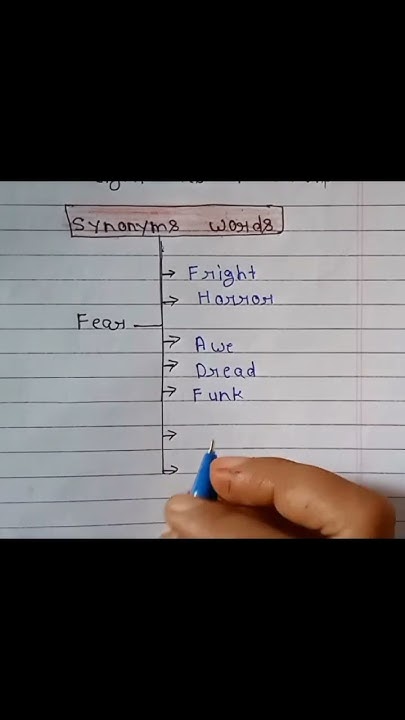 Synonyms words
Fright
Horror
Fear
Awe
Dread
Funk